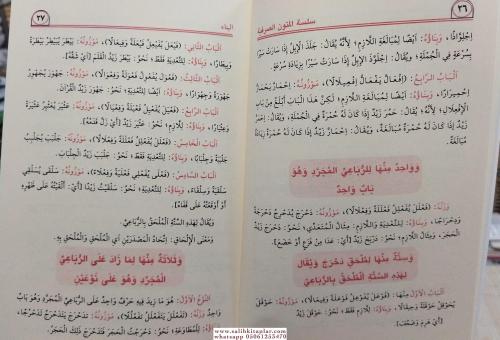 ٢٦
سلسلة المتون الصرفية
اجْلِوَّاذًا، وَبِنَاؤُهُ: أَيْضًا لِمُبَالَغَةِ اللَّازِمِ؛ لِأَنَّهُ يُقَالُ: جَلَذَ الْإِبِلُ إِذَا سَارَتْ سَيْرًا
بِسُرْعَةٍ فِي الْجُمْلَةِ؛ وَيُقَالُ: اجْلَوَّذَ الْإِبِلُ إِذَا سَارَتْ سَيْرًا بِزِيَادَةِ سُرْعَةٍ.
الْبَابُ الرَّابِعُ: (افْعَالَّ يَفْعَالُّ افْعِيلَالًا)، مَوْزُونُهُ: احْمَارَّ يَحْمَارُّ
احْمِيرَارًا، وَبِنَاؤُهُ: أَيْضًا لِمُبَالَغَةِ اللَّازِمِ؛ لَكِنَّ هَذَا الْبَابَ أَبْلَغُ مِنْ بَابِ
الِافْعِلَالِ؛ لِأَنَّهُ يُقَالُ: حَمِرَ زَيْدٌ إِذَا كَانَ لَهُ حُمْرَةٌ فِي الْجُمْلَةِ، وَيُقَالُ: احْمَرَّ
زَيْدٌ إِذَا كَانَ لَهُ حُمْرَةٌ مُبَالَغَةً، وَيُقَالُ: احْمَارَّ زَيْدٌ إِذَا كَانَ لَهُ حُمْرَةٌ زِيَادَةَ
مُبَالَغَةٍ.
وَوَاحِدٌ مِنْهَا لِلرُّبَاعِيِّ الْمُجَرَّدِ وَهُوَ
بَابٌ وَاحِدٌ
وَزْنُهُ: (فَعْلَلَ يُفَعْلِلُ فَعْلَلَةً وَفِعْلَالًا)، مَوْزُونُهُ: دَحْرَجَ يُدَحْرِجُ دَحْرَجَةً
وَدِحْرَاجًا، وَبِنَاؤُهُ: لِلتَّعْدِيَةِ غَالِبًا، وَقَدْ يَكُونُ لَازِمًا؛ مِثَالُ الْمُتَعَدِّي؛ نَحْوُ: دَحْرَجَ زَيْدٌ
الْحَجَرَ، وَمِثَالُ اللَّازِمِ؛ نَحْوُ: دَرْبَخَ زَيْدٌ
وَسِتَّةٌ مِنْهَا لِمُلْحَقِ دَحْرَجَ وَيُقَالُ
لِهَذِهِ السِّتَّةِ الْمُلْحَقُ بِالرُّبَاعِيِّ
الْبَابُ الْأَوَّلُ: (فَوْعَلَ يُفَوْعِلُ فَوْعَلَةً وَفِيعَالًا)، مَوْزُونُهُ: حَوْقَلَ
يُحَوْقِلُ حَوْقَلَةً وَحِيقَالًا، وَبِنَاؤُهُ: لِلَّازِمِ فَقَطْ، نَحْوُ: حَوْقَلَ زَيْدٌ
(أَيْ هَرِمَ وَضَعُفَ).
البناء
٢٧
الْبَابُ الثَّانِي: (فَيْعَلَ يُفَيْعِلُ فَيْعَلَةً وَفِيعَالًا)، مَوْزُونُهُ: بَيْطَرَ يُبَيْطِرُ بَيْطَرَةً
وَبِيطَارًا، وَبِنَاؤُهُ: لِلتَّعْدِيَةِ فَقَطْ؛ نَحْوُ: بَيْطَرَ زَيْدٌ الْقَلَمَ (أَيْ شَقَّهُ).
الْبَابُ الثَّالِثُ: (فَعْوَلَ يُفَعْوِلُ فَعْوَلَةً وَفِعْوَالًا)، مَوْزُونُهُ: جَهْوَرَ يُجَهْوِرُ
جَهْوَرَةً وَجِهْوَارًا، وَبِنَاؤُهُ: أَيْضًا لِلتَّعْدِيَةِ؛ نَحْوُ: جَهْوَرَ زَيْدٌ الْقُرْآنَ.
الْبَابُ الرَّابِعُ: (فَعْيَلَ يُفَعْيِلُ فَعْيَلَةً وَفِعْيَالًا)، مَوْزُونُهُ: عَثْيَرَ يُعَثْيِرُ عَثْيَرَةً
وَعِثْيَارًا، وَبِنَاؤُهُ: لِلَّازِمِ؛ نَحْوُ: عَثْيَرَ زَيْدٌ
الْبَابُ الْخَامِسُ: (فَعْلَلَ يُفَعْلِلُ فَعْلَلَةً وَفِعْلَالًا)، مَوْزُونُهُ: جَلْبَبَ يُجَلْبِبُ
جَلْبَبَةً وَجِلْبَابًا، وَبِنَاؤُهُ: لِلتَّعْدِيَةِ فَقَطْ؛ نَحْوُ: جَلْبَبَ زَيْدٌ الْجِلْبَابَ.
الْبَابُ السَّادِسُ: (فَعْلَى يُفَعْلِي فَعْلَيَةً وَفِعْلَاءً)، مَوْزُونُهُ: سَلْقَى يُسَلْقِي
سَلْقَيَةً وَسِلْقَاءً، وَبِنَاؤُهُ: لِلتَّعْدِيَةِ فَقَطْ؛ نَحْوُ: سَلْقَيْتُ زَيْدًا (أَيْ: أَلْقَيْتُهُ عَلَى ظَهْرِهِ
وَيُقَالُ لِهَذِهِ السِّتَّةِ الْمُلْحَقُ بِالرُّبَاعِيِّ.
وَمَعْنَى الْإِلْحَاقِ: اتِّحَادُ الْمَصْدَرَيْنِ أَيِ الْمُلْحَقِ وَالْمُلْحَقِ بِهِ.
وَثَلَاثَةٌ مِنْهَا لِمَا زَادَ عَلَى الرُّبَاعِيِّ
الْمُجَرَّدِ وَهُوَ عَلَى نَوْعَيْنِ
النَّوْعُ الْأَوَّلُ: هُوَ مَا زِيدَ فِيهِ حَرْفٌ وَاحِدٌ عَلَى الرُّبَاعِيِّ الْمُجَرَّدِ وَهُوَ بَابٌ
وَاحِدٌ، وَزْنُهُ: (تَفَعْلَلَ يَتَفَعْلَلُ تَفَعْلُلًا)، مَوْزُونُهُ: تَدَحْرَجَ يَتَدَحْرَجُ تَدَحْرُجًا،
وَبِنَاؤُهُ: لِلْمُطَاوَعَةِ؛ نَحْوُ: دَحْرَجْتُ الْحَجَرَ فَتَدَحْرَجَ ذَلِكَ الْحَجَرُ.
www.salihkitaplar.com
whatsapp 05061255470